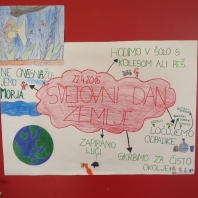 HODIMO V ŠOLO S
KOLESOM ALI PEŠ
NE ONESNAŽU
JEMO
MORJA
22.4.2016
SVETOVNI DAN
ZEMLJE
LOČUJEMO
ODPADKE
ZAPIRAMO
LUČI
SKRBIMO ZA ČISTO
OKOLJE